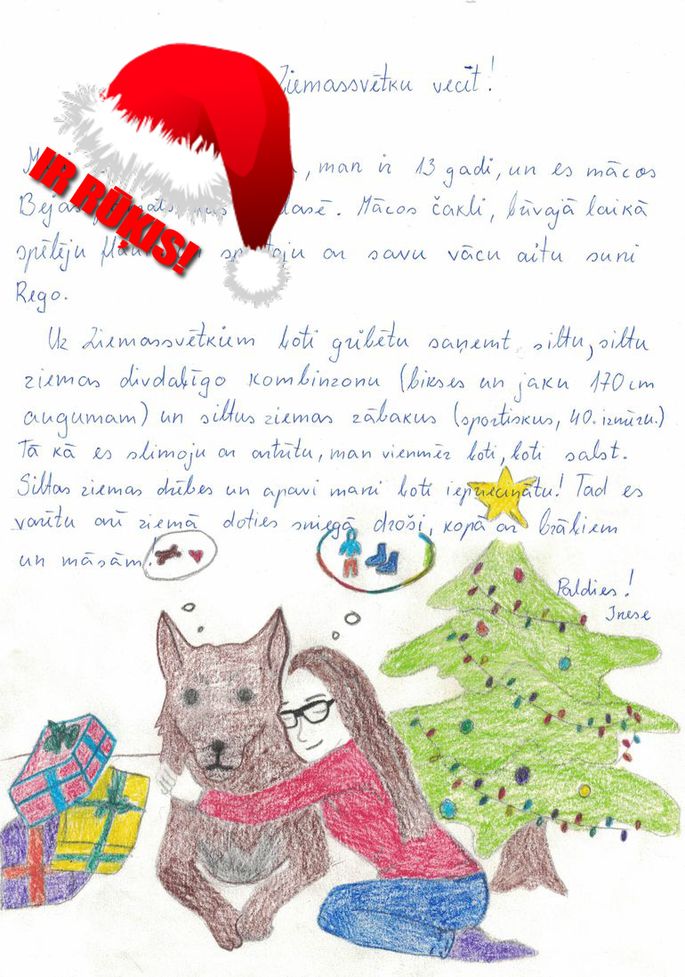 Ziemassvētku vecīt!
, man ir 13 gadi, un es mācos
Bejas Mācos čakli, brīvajā laikā
spēlēju ar savu vācu aitu suni
Rego.
IR RŪĶIS!
Uz Ziemassvētkiem ļoti gribētu saņemt siltu, siltu
ziemas divdaļīgo kombinzonu (bikses un jaku 170 cm
augumam) un siltus ziemas zābakus (sportiskus, 40. izmēru.)
Tā kā es slimoju ar artrītu, man vienmēr ļoti, ļoti salst.
Siltas ziemas drēbes un apavi mani ļoti iepriecinātu! Tad es
varētu arī ziemā doties sniegā droši, kopā ar brāļiem
un māsām!
Paldies!
Inese